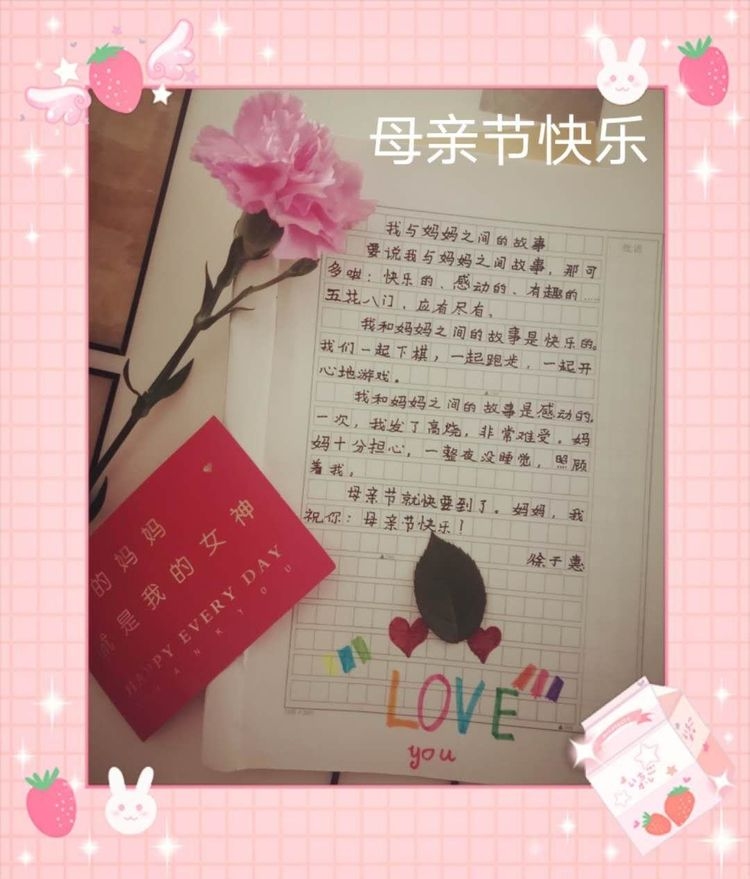 母亲节快乐
我与妈妈之间的故事
要说我与妈妈之间故事，那可
多啦：快乐的、感动的、有趣的……
五花八门，应有尽有。
我和妈妈之间的故事是快乐的。
我们一起下棋，一起跑步，一起开
心地游戏。
我和妈妈之间的故事是感动的。
一次，我发了高烧，非常难受。妈
妈十分担心，一整夜没睡觉，照顾
着我。
母亲节就快要到了。妈妈，我
祝你：母亲节快乐！
徐子惠
LOVE
you
的妈妈
就是我的女神
HAPPY EVERY DAY
THANK YOU